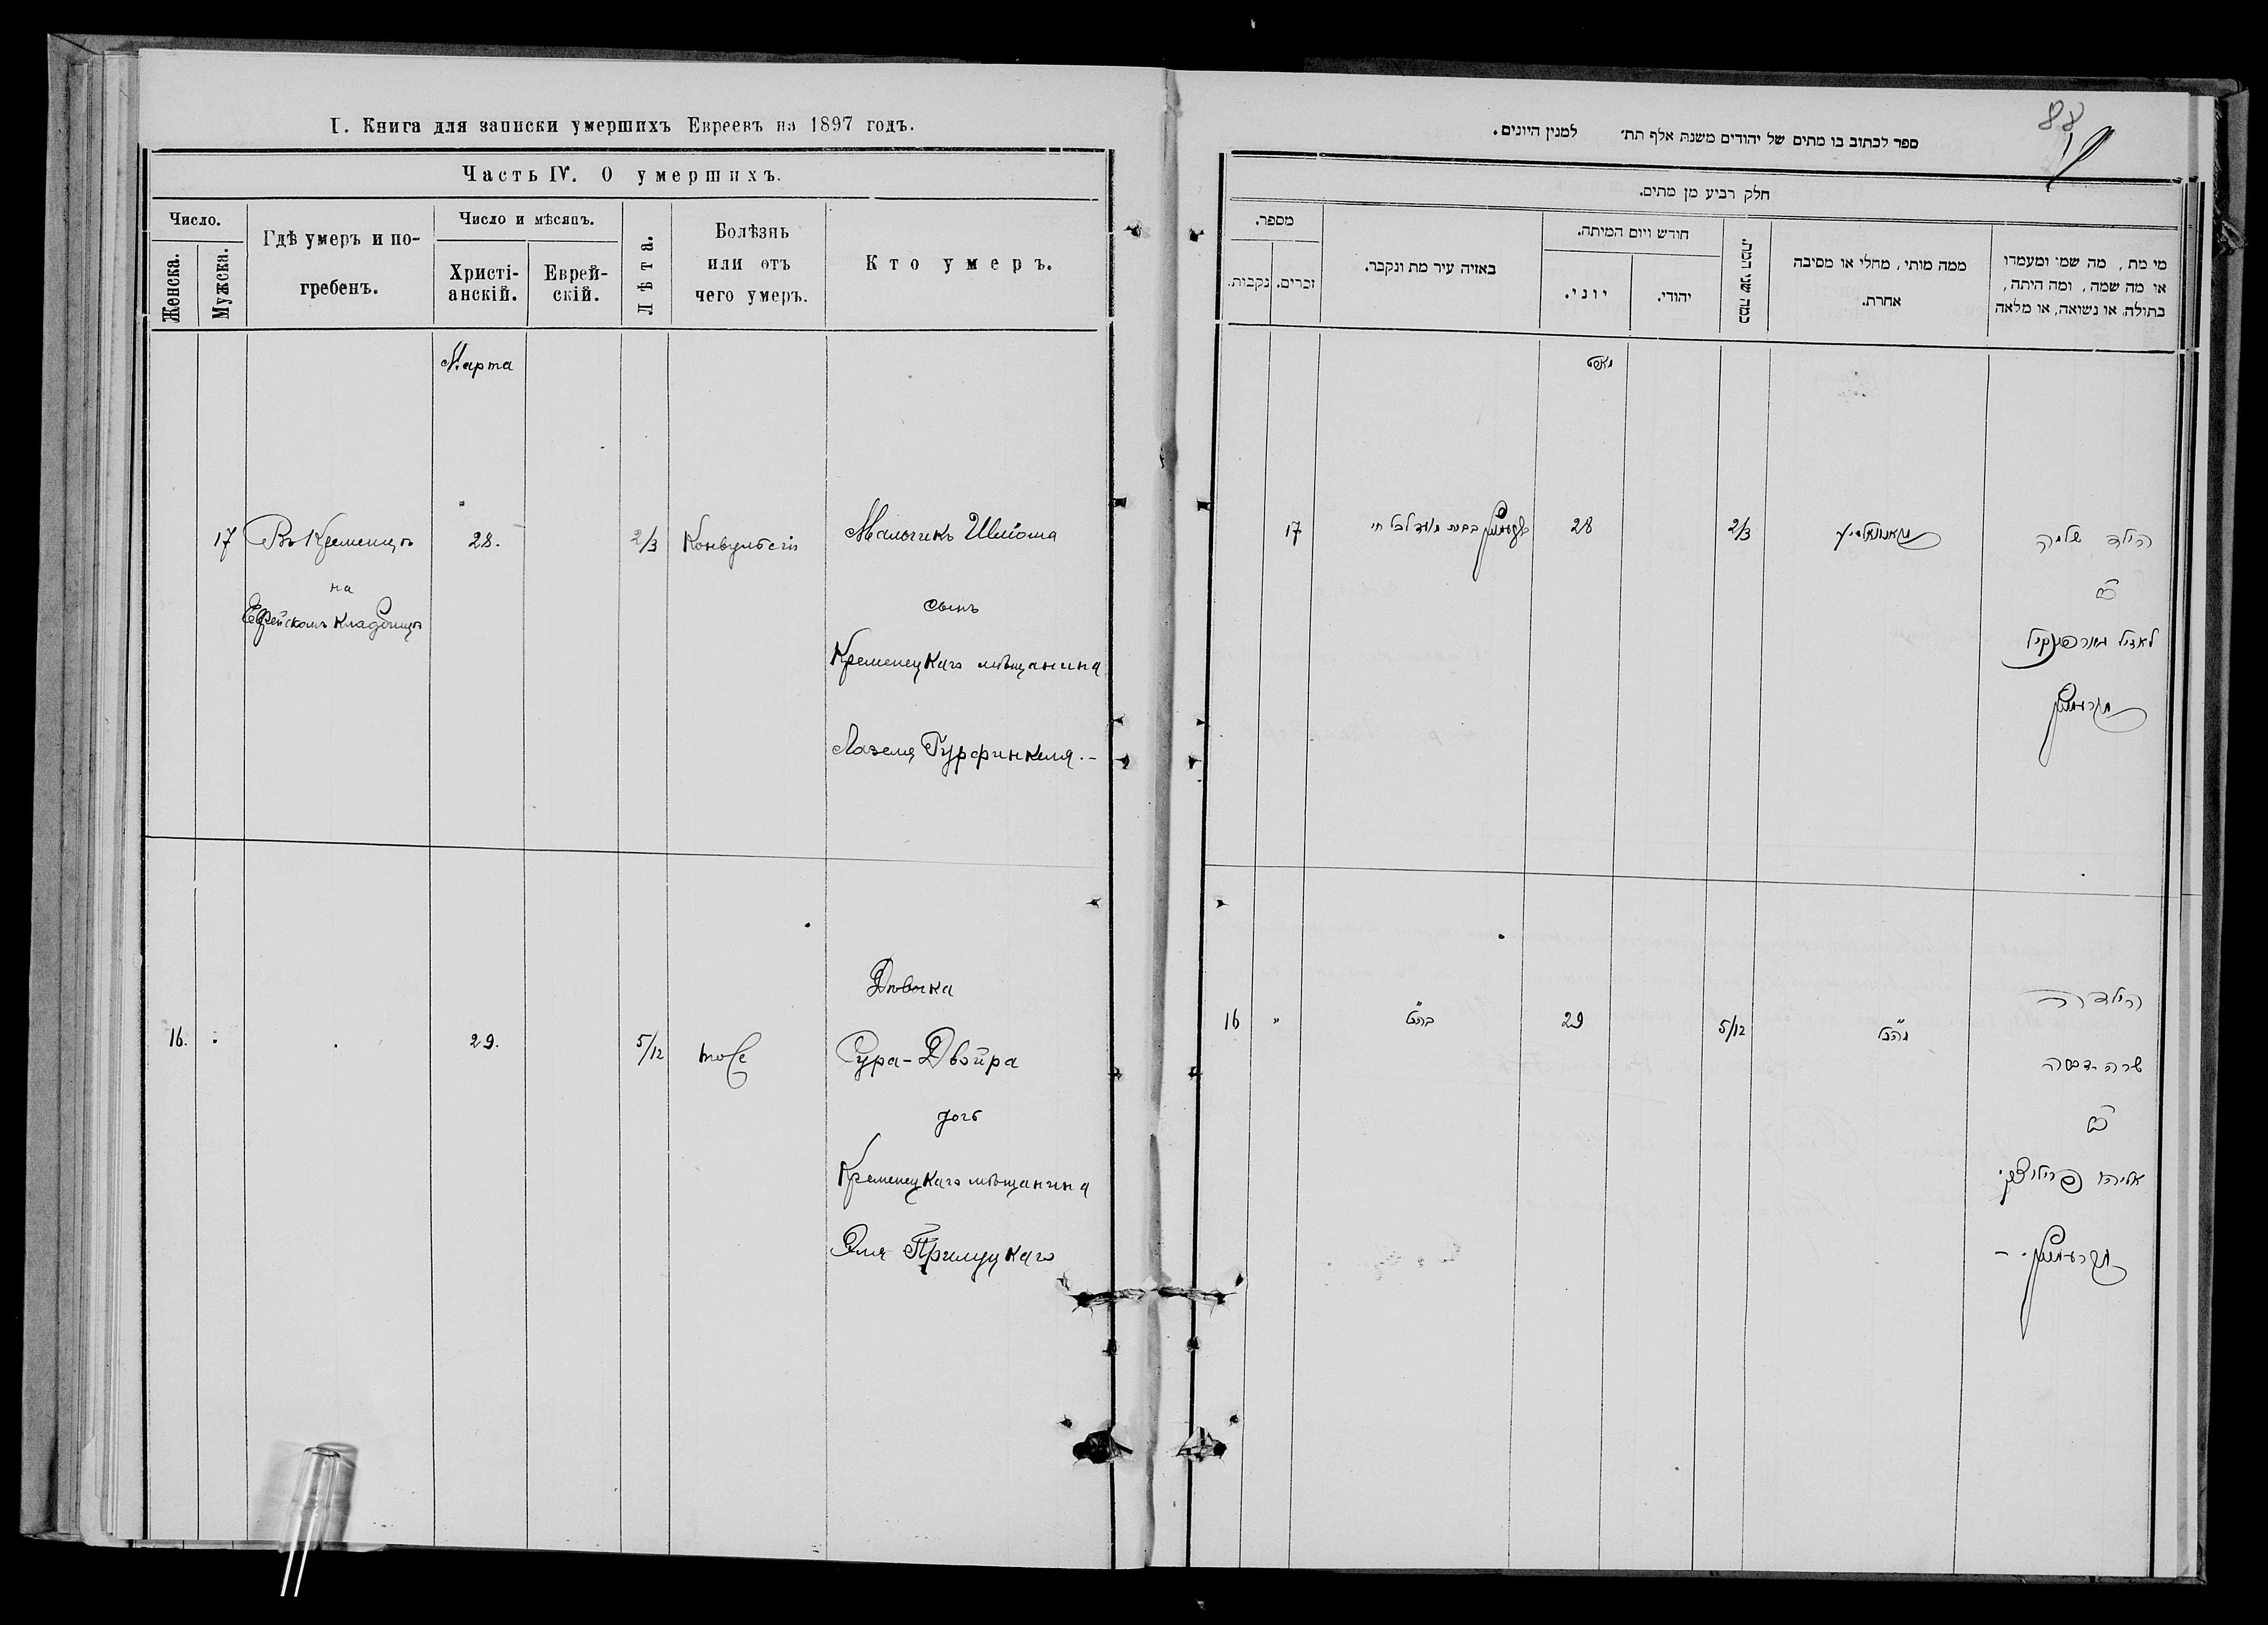 I. Книга для записки умершихъ Евреевъ на 1897 годъ.
Часть IV. О умершихъ.
Число.
Женска.
Мужска.
Гдѣ умеръ и по-
гребенъ.
Число и мѣсяцъ.
Христі-
анскій.
Еврей-
скій.
Лѣта.
Болѣзнь
или отъ
чего умеръ.
Кто умеръ.
Марта
17
Въ Кременцѣ
на
Еврейскомъ кладбищѣ
28.
2/3
Конвульсія
Мальчикъ Шлёма
сынъ
Кременецкаго мѣщанина
Лазеля Гурфинкеля.-
16.
29.
5/12
тоже
Дѣвочка
Сура-Двойра
дочь
Кременецкаго мѣщанина
Эля Прилуцкаго
88
ספר לכתוב בו מתים של יהודים משנת אלף תת׳ למנין היונים.
חלק רביע מן מתים.
מספר.
נקבות.
זכרים.
באיזה עיר מת ונקבר.
חודש ויום המיתה.
יוני.
יהודי.
כמה שני המת.
ממה מותי, מחלי או מסיבה
אחרת.
מי מת, מה שמו ומעמדו
או מה שמה, ומה היתה,
בתולה או נשואה, או מלאה
מארט
17
קרעמניץ בבית מועד לכל חי
28
2/3
קאנוואלסיע
הילד שלמה
בן
לאזיל גורפינקיל
מקרעמניץ
16
"
כנ"ל
29
5/12
כנ"ל
הילדה
שרה-דבורה
בת
אליהו פרילוצקי
מקרעמניץ.-